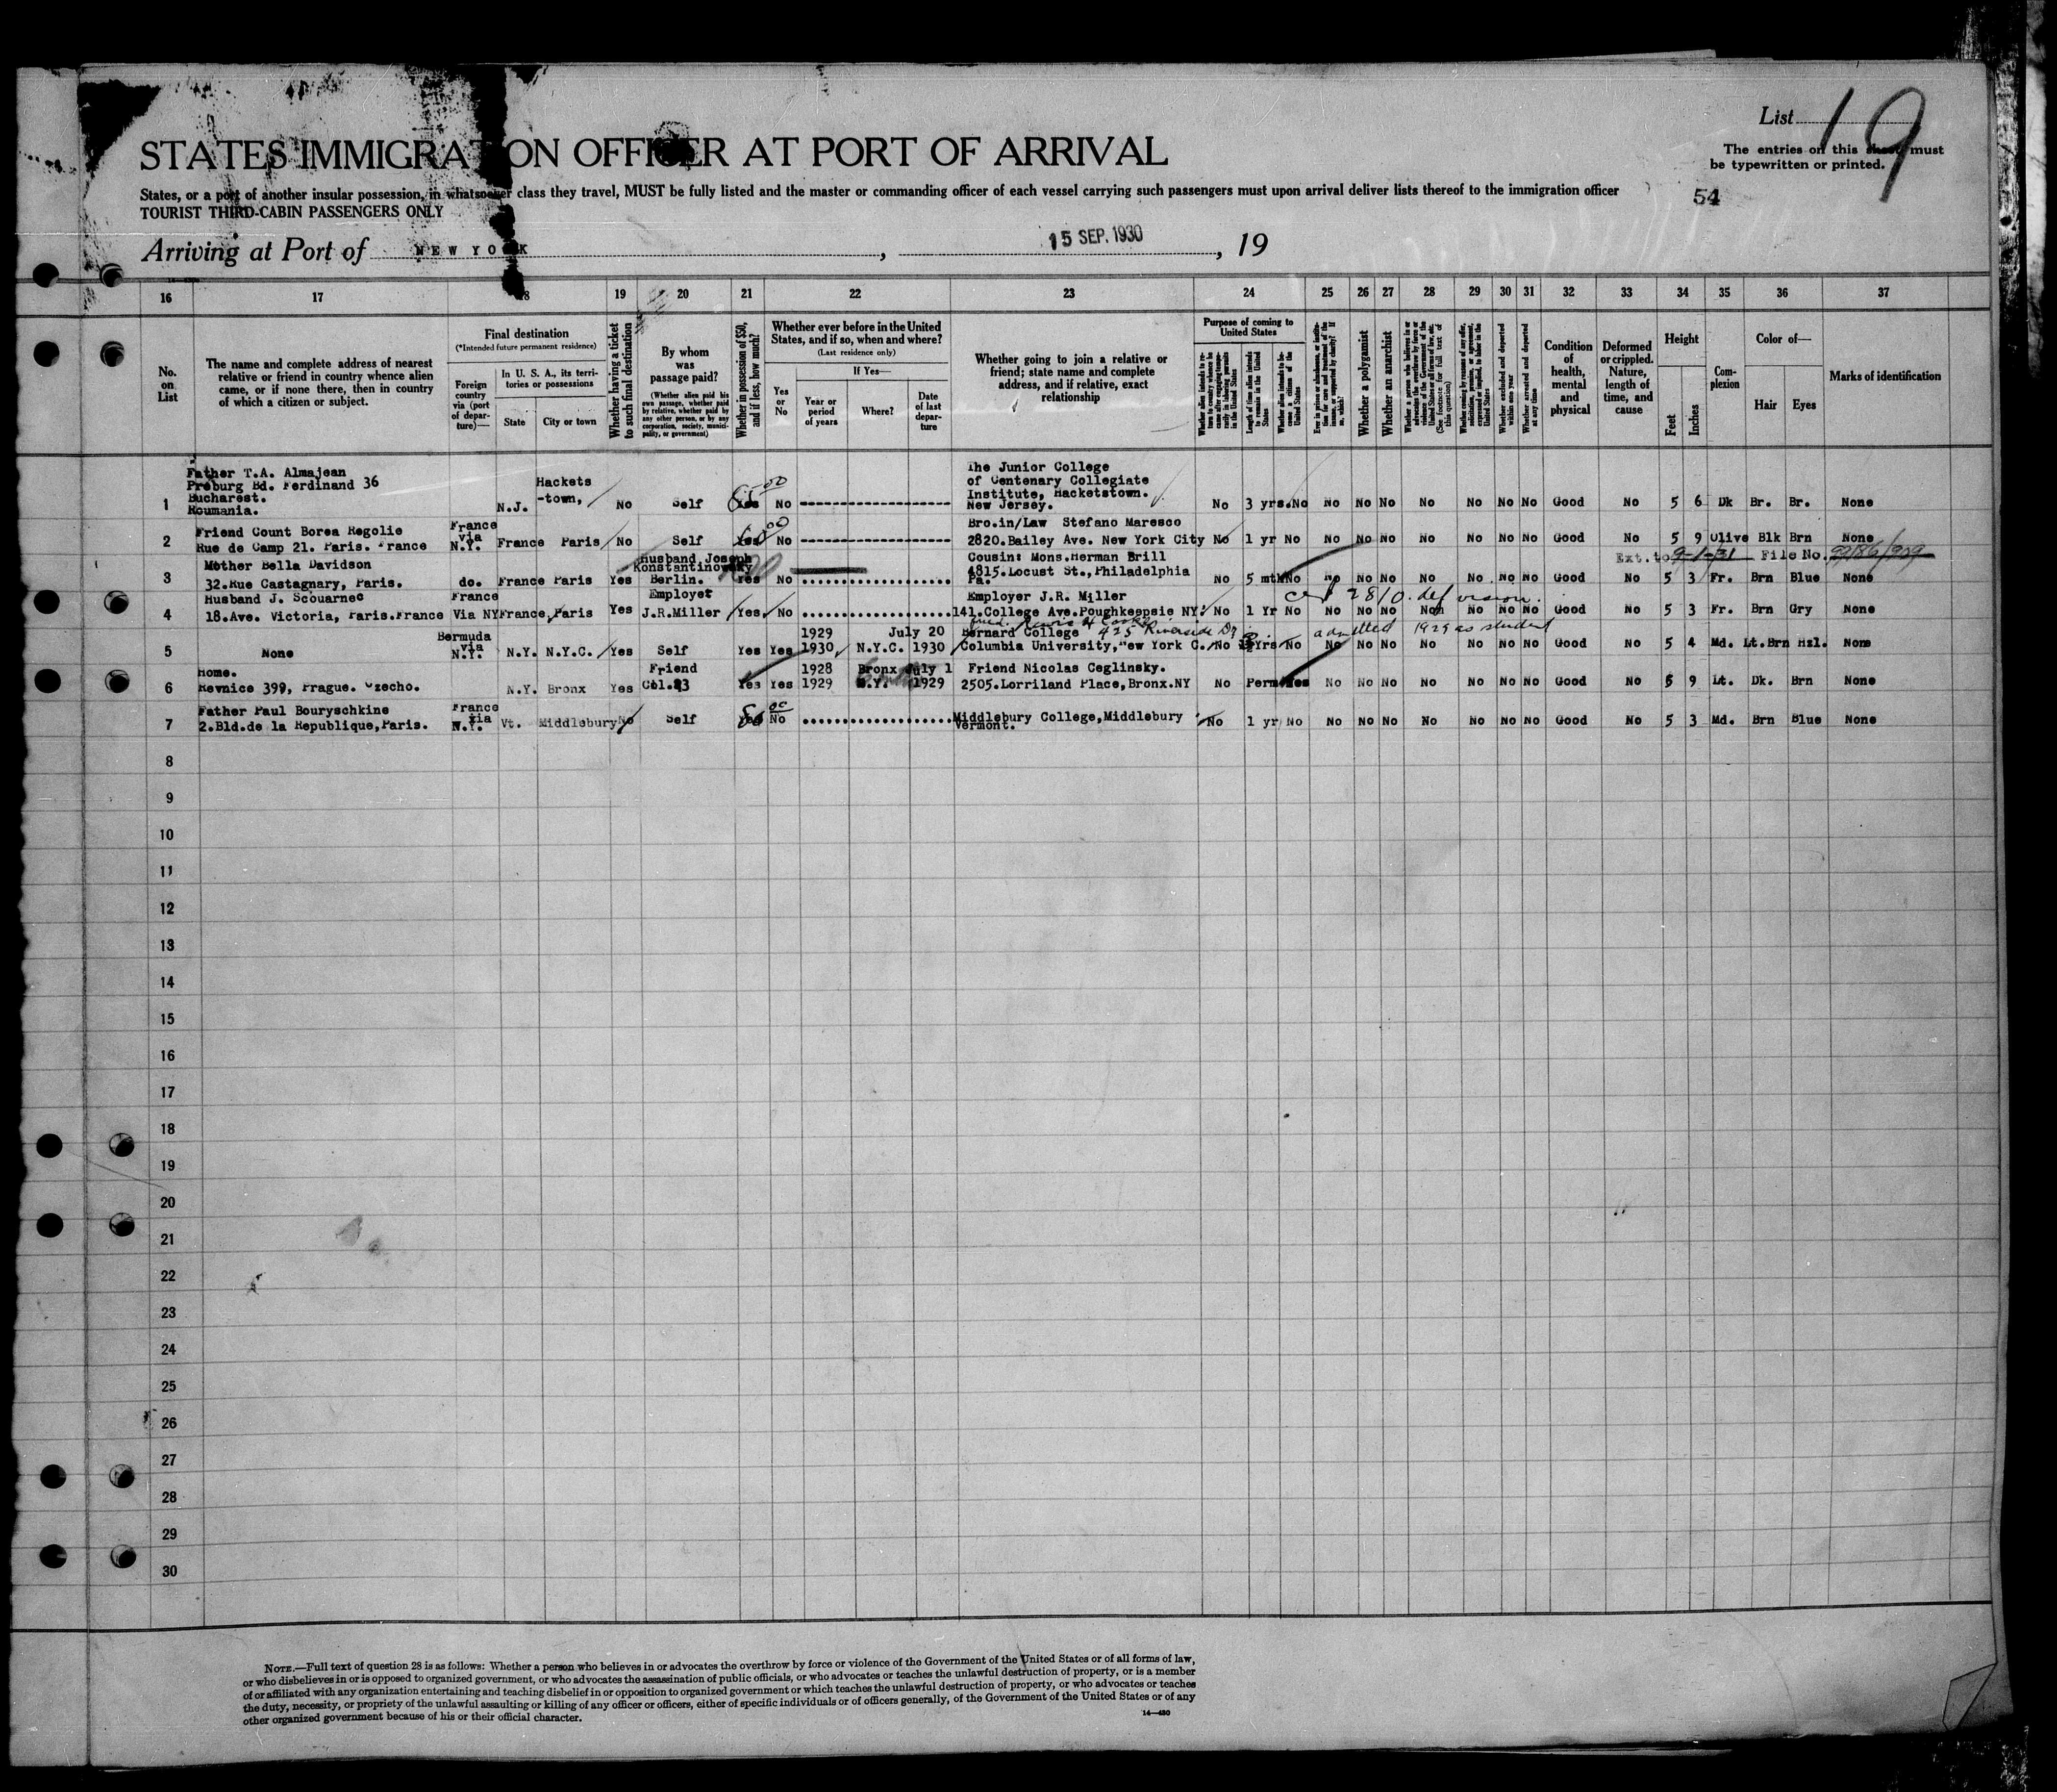 List 19
The entries on this sheet must
be typewritten or printed.
STATES IMMIGRATION OFFICER AT PORT OF ARRIVAL
States, or a port of another insular possession, in whatsoever class they travel, MUST be fully listed and the master or commanding officer of each vessel carrying such passengers must upon arrival deliver lists thereof to the immigration officer
54
TOURIST THIRD-CABIN PASSENGERS ONLY
Arriving at Port of NEW YORK, 15 SEP. 1930, 19
16 17 18 19 20 21 22 23 24 25 26 27 28 29 30 31 32 33 34 35 36 37
No. on List
The name and complete address of nearest relative or friend in country whence alien came, or if none there, then in country of which a citizen or subject.
Final destination
(*Intended future permanent residence)
Foreign country via (port of departure)—
In U. S. A., its territories or possessions
State City or town
Whether having a ticket to such final destination
By whom was passage paid?
(Whether alien paid his own passage, whether paid by relative, whether paid by any other person, or by any corporation, society, municipality, or government)
Whether in possession of $50, and if less, how much?
Whether ever before in the United States, and if so, when and where?
(Last residence only)
Yes or No
If Yes—
Year or period of years Where? Date of last departure
Whether going to join a relative or friend; state name and complete address, and if relative, exact relationship
Purpose of coming to United States
Length of time alien intends to remain in the United States
Whether alien intends to become a citizen of the United States
Whether a polygamist
Whether an anarchist
Whether excluded and deported within one year
Whether arrested and deported at any time
Condition of health, mental and physical
Deformed or crippled. Nature, length of time, and cause
Height
Feet Inches
Complexion
Color of—
Hair Eyes
Marks of identification
1 Father T.A. Almajean
Preburg Bd. Ferdinand 36
Bucharest.
Roumania. N.J. Hackets-town, No Self Yes No The Junior College
of Centenary Collegiate
Institute, Hacketstown.
New Jersey. No 3 yrs. No No No No No No No No Good No 5 6 Dk Br. Br. None
2 Friend Count Borea Regolie
Rue de Camp 21. Paris. France France via N.Y. France Paris No Self Yes No Bro.in/Law Stefano Maresco
2820.Bailey Ave. New York City No 1 yr No No No No No No No No Good No 5 9 Olive Blk Brn None
Ext.to 9-1-31 File No. 99186/929
3 Mother Bella Davidson
32.Rue Castagnary, Paris. do. France Paris Yes Husband Joseph
Konstantinowsky
Berlin. Yes No Cousin: Mons.Herman Brill
4815.Locust St.,Philadelphia
Pa. No 5 mth No No No No No No No No Good No 5 3 Fr. Brn Blue None
4 Husband J. Scouarnec
18.Ave. Victoria, Paris.France France Via NY France, Paris Yes Employer
J.R.Miller Yes No Employer J.R. Miller
141.College Ave.Poughkeepsie NY: No 1 Yr No No No No No No No No Good No 5 3 Fr. Brn Gry None
5 None Bermuda via N.Y. N.Y. N.Y.C. Yes Self Yes Yes 1929
1930, N.Y.C. July 20
1930 Bernard College 425 Riverside Dr
Columbia University, New York C. No Yrs No No No No No No No No Good No 5 4 Md. Lt.Brn Hzl. None
admitted 1929 as student
6 Home.
Revnice 399, Prague. Czecho. N.Y. Bronx Yes Friend
Col.23 Yes Yes 1928
1929 Bronx
N.Y. July 1
1929 Friend Nicolas Ceglinsky.
2505.Lorriland Place,Bronx.NY No Perm Yes No No No No No No No Good No 5 9 Lt. Dk. Brn None
7 Father Paul Bouryschkine
2.Bld.de la Republique,Paris. France via N.Y. Vt. Middlebury No Self Yes No Middlebury College,Middlebury
Vermont. No 1 yr No No No No No No No No Good No 5 3 Md. Brn Blue None
8
9
10
11
12
13
14
15
16
17
18
19
20
21
22
23
24
25
26
27
28
29
30
NOTE.—Full text of question 28 is as follows: Whether a person who believes in or advocates the overthrow by force or violence of the Government of the United States or of all forms of law,
or who disbelieves in or is opposed to organized government, or who advocates the assassination of public officials, or who advocates or teaches the unlawful destruction of property, or is a member
of or affiliated with any organization entertaining and teaching disbelief in or opposition to organized government or which teaches the unlawful destruction of property, or who advocates or teaches
the duty, necessity, or propriety of the unlawful assaulting or killing of any officer or officers, either of specific individuals or of officers generally, of the Government of the United States or of any
other organized government because of his or their official character.
14—430